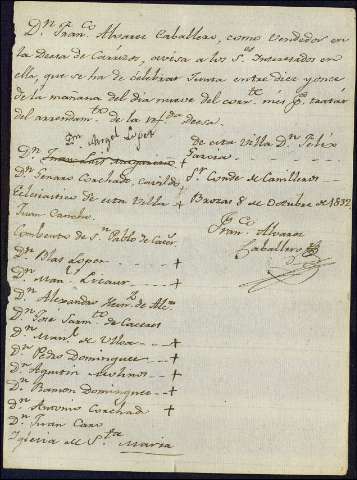 Dn. Franco. Alvarez Caballero, como Vendedor en
la Desa de Carvisos, avisa a los Ss. Interesados en
ella, que se ha de celebrar Junta entre diez y once
de la mañana del dia nueve del corrte. mes pa. tratar
del arrendamto. de la refda. Deesa.
Dn. Angel Lopez
Dn. +
Dn. Genaro Corchado, cavildo
Eclesiastico de esta Villa +
Juan Cancho
Combento de Sn. Pablo de Cacer.
Dn. Blas Lopez - - +
Dn. Manl. Lizaur - - +
Dn. Alexandro Hernz. de Alcn.
Dn. José Sarmto. de Caceres
Dn. Manl. de Ulloa - - +
Dn. Pedro Dominguez - - +
Dn. Agustin Molinos - - +
Dn. Ramon Dominguez - - +
Dn. Antonio Corchad +
Dn. Juan Caro
Iglecia de Sta. Maria
de esta Villa Dn. Felix
Garcia
Sr. Conde de Canilleros
Brozas 8 de Octubre de 1832
Franco. Alvarez
Caballero